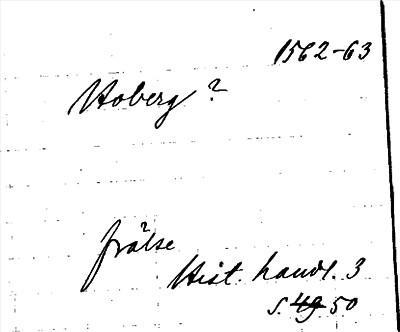 1562-63
Hoberg?
frälse
Hist. handl. 3
s. 49 50